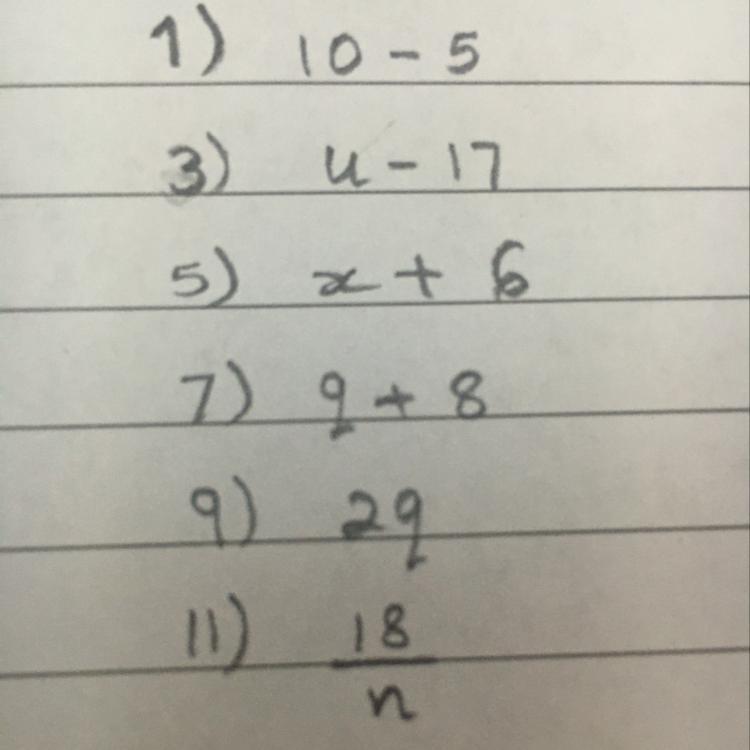 1) 10 - 5
3) u - 17
5) x + 6
7) q + 8
9) 2q
11) 18
n